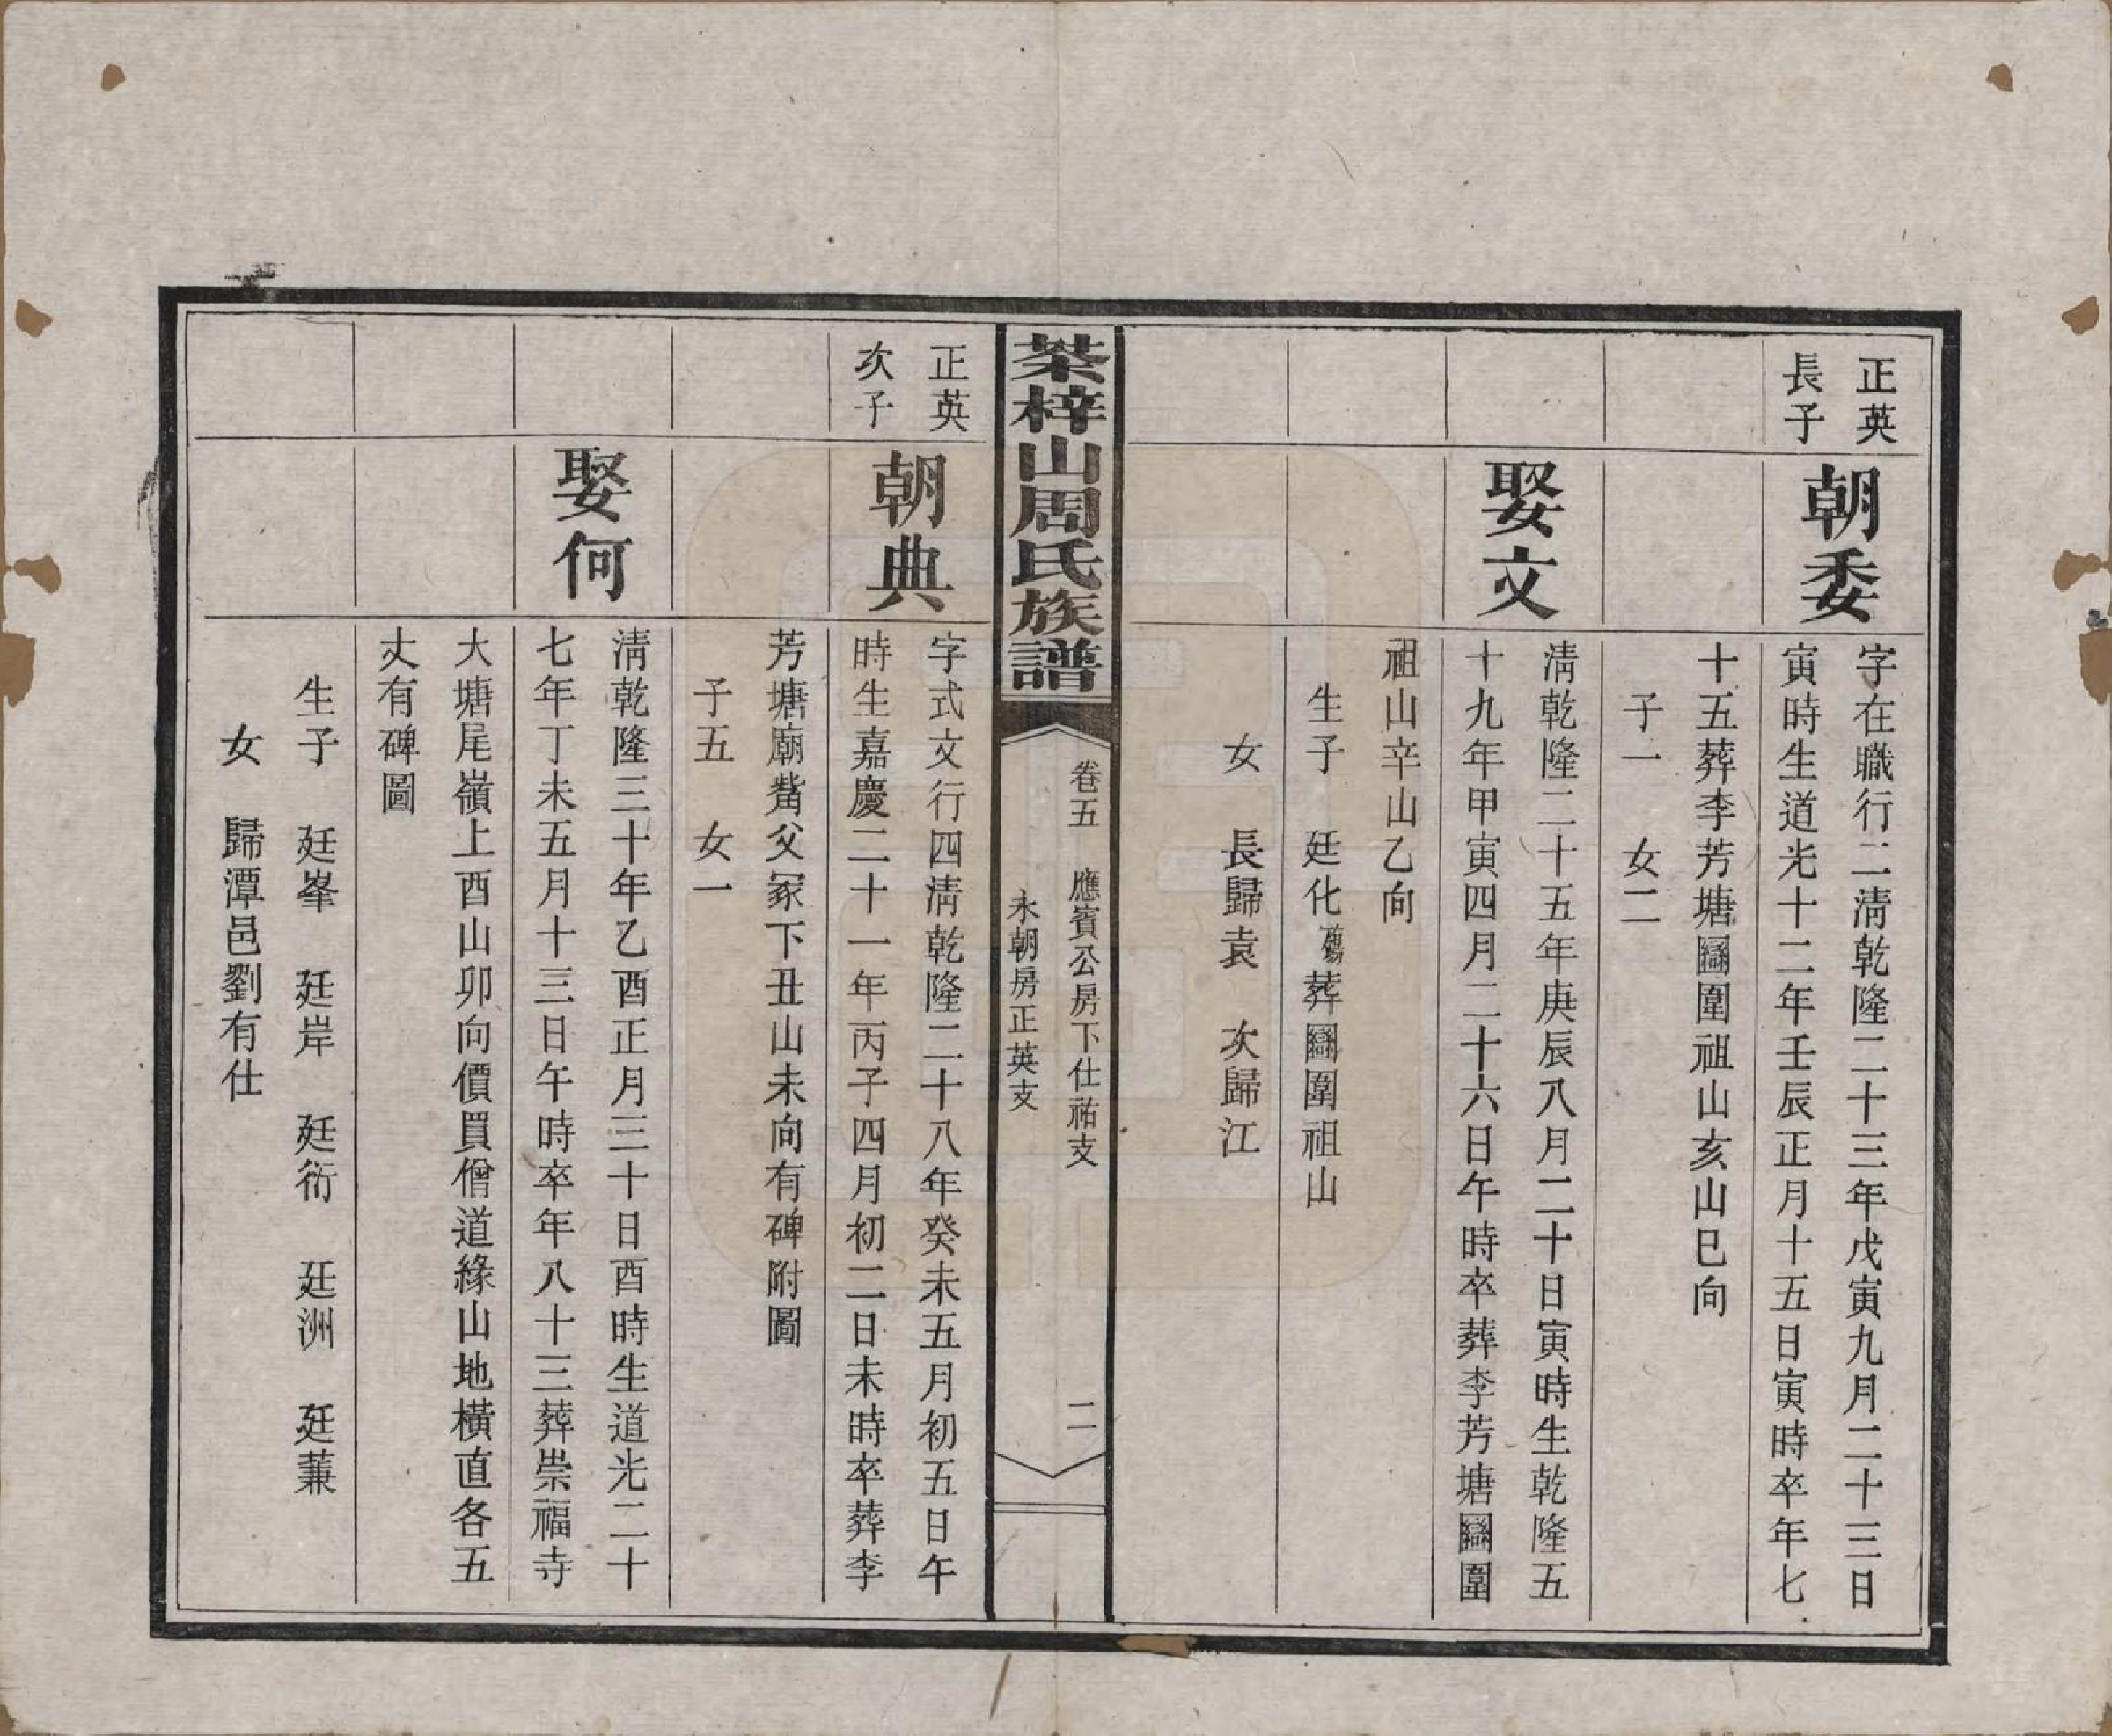 正英
長子
朝委
字在職行二清乾隆二十三年戊寅九月二十三日
寅時生道光十二年壬辰正月十五日寅時卒年七
十五葬李芳塘圞圍祖山亥山巳向
子一　女二
娶文
清乾隆二十五年庚辰八月二十日寅時生乾隆五
十九年甲寅四月二十六日午時卒葬李芳塘圞圍
祖山辛山乙向
生子　廷化　葬圞圍祖山
女　長歸袁　次歸江
茶梓山周氏族譜
卷五　應賓公房下仕祐支
永朝房正英支
二
正英
次子
朝典
字式文行四清乾隆二十八年癸未五月初五日午
時生嘉慶二十一年丙子四月初二日未時卒葬李
芳塘廟觜父冢下丑山未向有碑附圖
子五　女一
娶何
清乾隆三十年乙酉正月三十日酉時生道光二十
七年丁未五月十三日午時卒年八十三葬崇福寺
大塘尾嶺上酉山卯向價買僧道緣山地橫直各五
丈有碑圖
生子　廷峯　廷岸　廷衍　廷洲　廷蒹
女　歸潭邑劉有仕